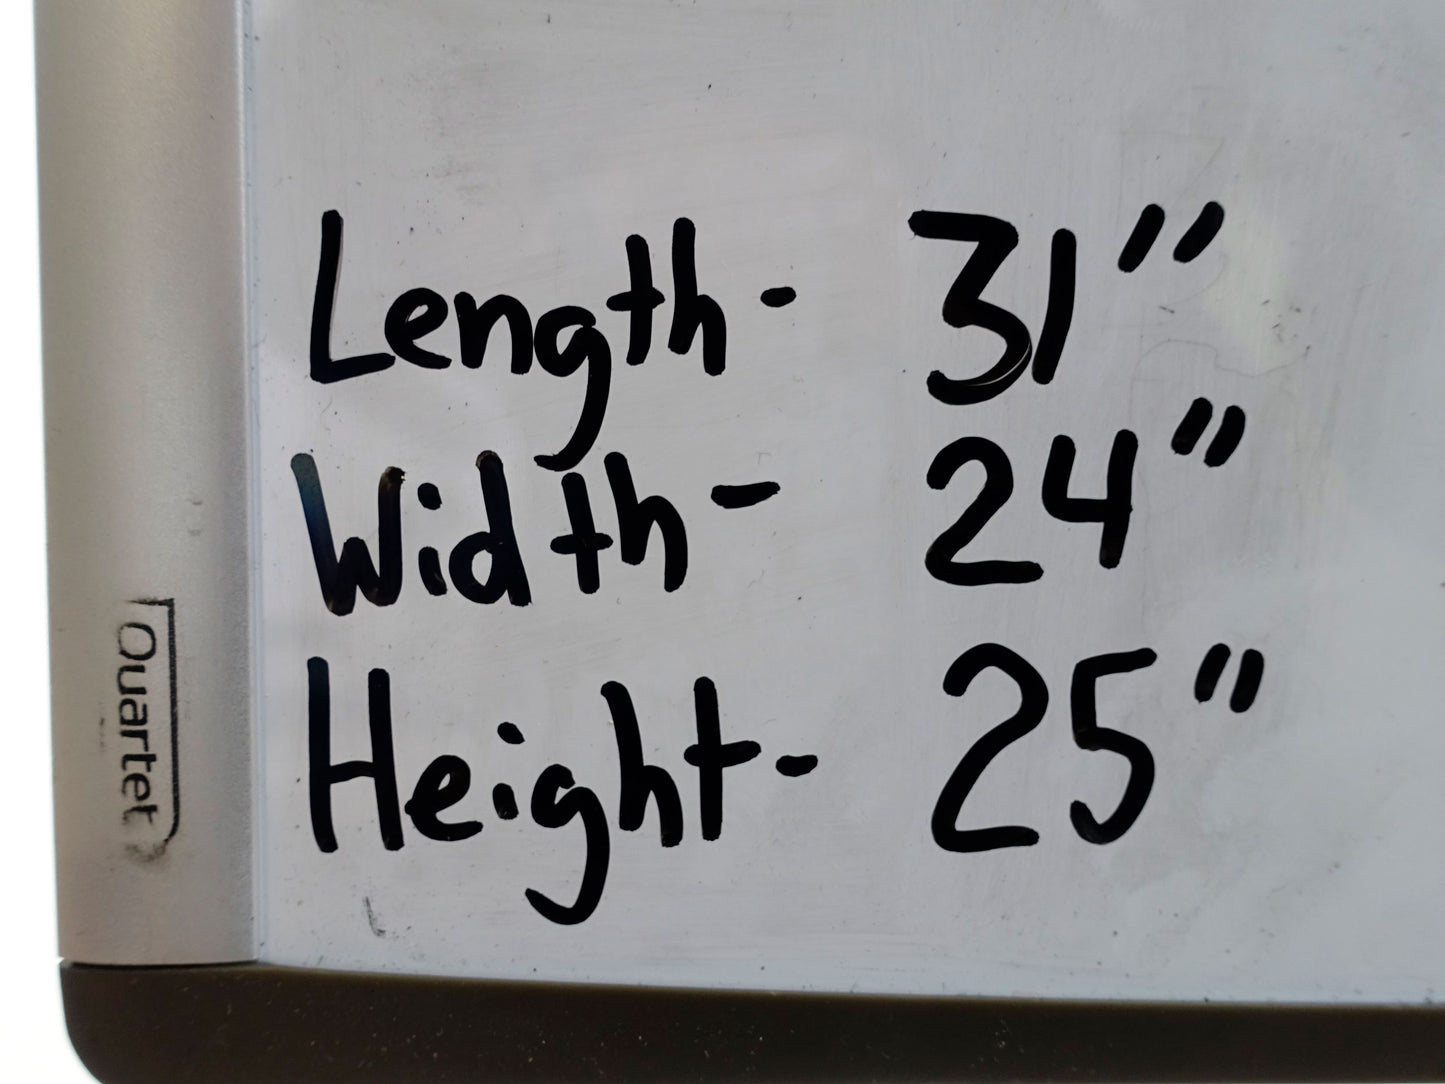 Length- 31"
Width- 24"
Height- 25"
Quartet